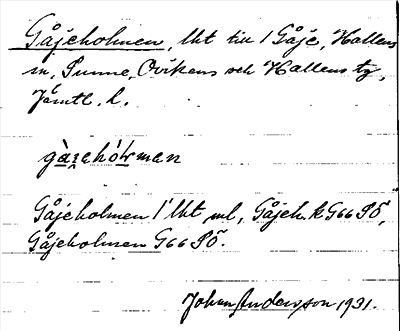 Gåjeholmen, lht till 1 Gåje, Hallens
sn, Sunne, Ovikens och Hallens tg,
Jämtl. l.
Gåjeholmen 1' lht ml, Gåjeh. k G66 SÖ,
Gåjeholmen G66 SÖ.
Johan Andersson 1931.